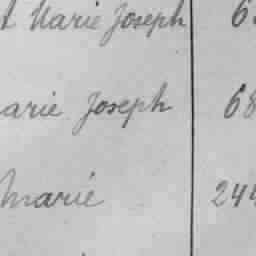 t Marie Joseph 6
arie Joseph 68
Marie 244